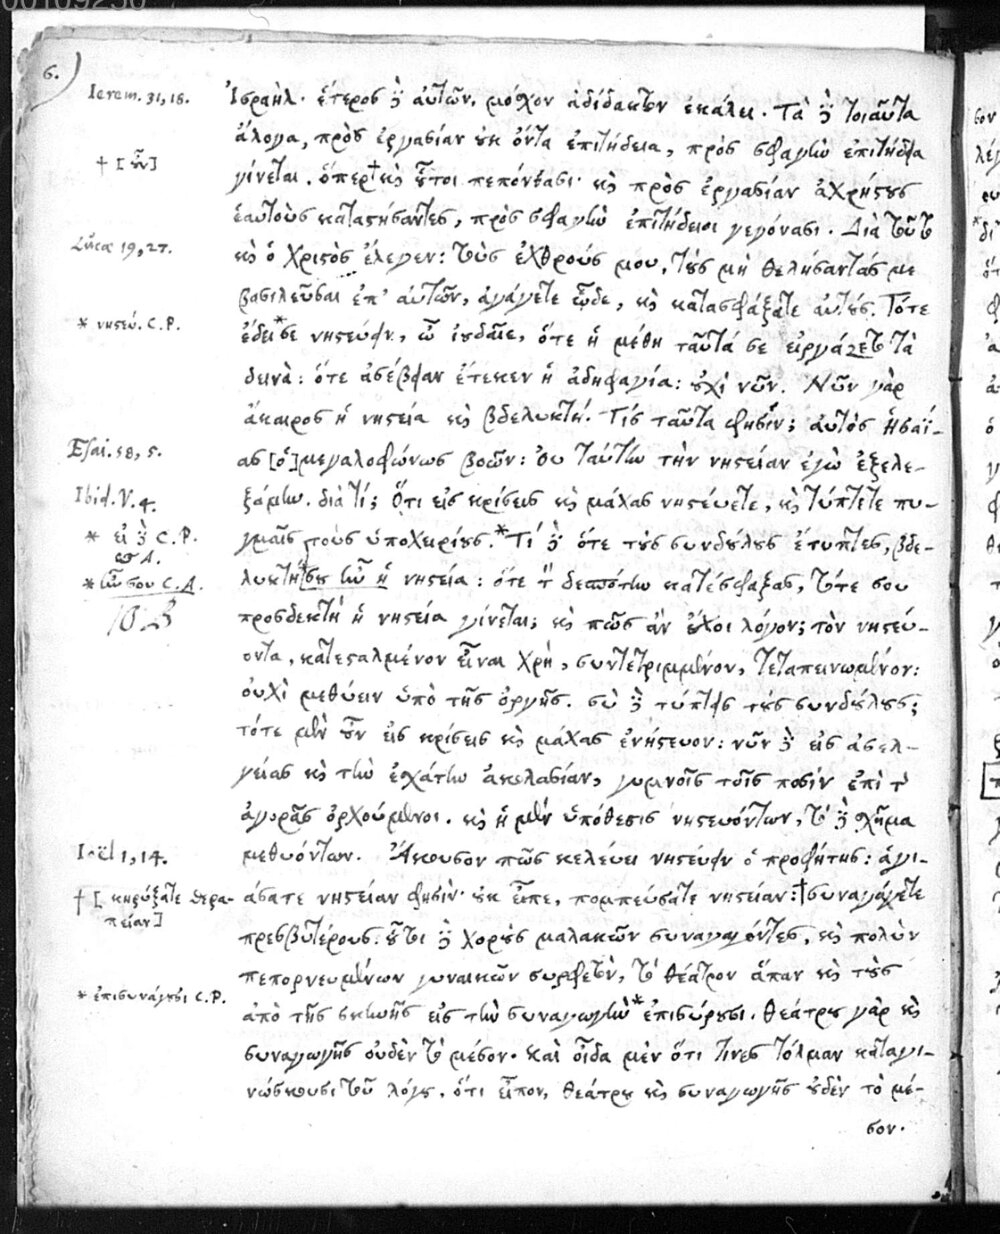 00109250
6.
Ierem. 31, 18. Ἰσραήλ. ἕτερος δὲ αὐτῶν, μόσχον ἀδίδακτον ἐκάλει. Τὰ δὲ τοιαῦτα
ἄλογα, πρὸς ἐργασίαν οὐκ ὄντα ἐπιτήδεια, πρὸς σφαγὴν ἐπιτήδεια
† [οὖν] γίνεται. ὅπερ† καὶ οὗτοι πεπόνθασι· καὶ πρὸς ἐργασίαν ἀχρήστους
ἑαυτοὺς καταστήσαντες, πρὸς σφαγὴν ἐπιτήδειοι γεγόνασι. Διὰ τοῦτο
Lucae 19, 27. καὶ ὁ Χριστὸς ἔλεγεν: τοὺς ἐχθρούς μου, τοὺς μὴ θελήσαντάς με
βασιλεῦσαι ἐπ' αὐτῶν, ἀγάγετε ὧδε, καὶ κατασφάξατε αὐτούς. Τότε
* νηστεύ. C.P. ἔδει* σε νηστεύειν, ὦ ἰουδαῖε, ὅτε ἡ μέθη ταῦτά σε εἰργάζετο τὰ
δεινὰ: ὅτε ἀσέβειαν ἔτεκεν ἡ ἀδηφαγία: οὐχὶ νῦν. Νῦν γὰρ
ἄκαιρος ἡ νηστεία καὶ βδελυκτή. Τίς ταῦτα φησίν; αὐτὸς Ἡσαΐ-
Esai. 58, 5. ας [ὁ] μεγαλοφώνως βοῶν: Οὐ ταύτην τὴν νηστείαν ἐγὼ ἐξελε-
Ibid. V. 4. ξάμην. διὰ τί; Ὅτι εἰς κρίσεις καὶ μάχας νηστεύετε, καὶ τύπτετε πυ-
* εἰ δὲ C.P. γμαῖς τοὺς ὑποχειρίους. * Τί δὲ ὅτε τοὺς συνδούλους ἔτυπτες, βδε-
* ἦν σου C.A. λυκτή σου ἦν ἡ νηστεία: ὅτε τὸν δεσπότην κατέσφαξας, τότε σου
προσδεκτὴ ἡ νηστεία γίνεται; καὶ πῶς ἂν ἔχοι λόγον; τὸν νηστεύ-
οντα, κατεσταλμένον εἶναι χρὴ, συντετριμμένον, τεταπεινωμένον:
οὐχὶ μεθύειν ὑπὸ τῆς ὀργῆς. σὺ δὲ τύπτεις τοὺς συνδούλους;
τότε μὲν οὖν εἰς κρίσεις καὶ μάχας ἐνήστευον: νῦν δὲ εἰς ἀσελ-
γείας καὶ τὴν ἐσχάτην ἀκολασίαν, γυμνοῖς τοῖς ποσὶν ἐπὶ τῆς
ἀγορᾶς ὀρχούμενοι. καὶ ἡ μὲν ὑπόθεσις νηστευόντων, τὸ δὲ σχῆμα
Ioël 1, 14. μεθυόντων. Ἄκουσον πῶς κελεύει νηστεύειν ὁ προφήτης: ἁγι-
† [κηρύξατε θερα- άσατε νηστείαν φησίν· οὐκ εἶπε, πομπεύσατε νηστείαν: † συναγάγετε
πείαν] πρεσβυτέρους. οὗτοι δὲ χοροὺς μαλακῶν συναγαγόντες, καὶ πολὺν
πεπορνευμένων γυναικῶν συρφετὸν, τὸ θέατρον ἅπαν καὶ τοὺς
* ἐπισυνάγουσι C.P. ἀπὸ τῆς σκηνῆς εἰς τὴν συναγωγὴν* ἐπισύρουσι. θεάτρου γὰρ καὶ
συναγωγῆς οὐδὲν τὸ μέσον. Καὶ οἶδα μὲν ὅτι τινες τόλμαν καταγι-
νώσκουσι τοῦ λόγου, ὅτι εἶπον, θεάτρου καὶ συναγωγῆς οὐδὲν τὸ μέ-
σον.